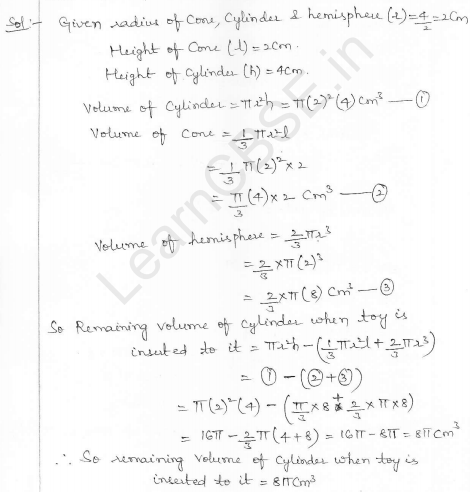 Sol:- Given radius of Cone, Cylinder & hemisphere (r) = 4/2 = 2cm
Height of Cone (l) = 2cm.
Height of Cylinder (h) = 4cm.
Volume of Cylinder = πr²h = π(2)²(4) cm³ — ①
Volume of Cone = 1/3 πr²l
= 1/3 π(2)² × 2
= π/3 (4) × 2 cm³ — ②
Volume of hemisphere = 2/3 πr³
= 2/3 × π(2)³
= 2/3 × π(8) cm³ — ③
So Remaining volume of Cylinder when toy is
inserted to it = πr²h - (1/3 πr²l + 2/3 πr³)
= ① - (② + ③)
= π(2)²(4) - (π/3 × 8 + 2/3 × π × 8)
= 16π - 2/3 π(4+8) = 16π - 8π = 8π cm³
∴ So remaining volume of Cylinder when toy is
inserted to it = 8π cm³
LearnCBSE.in